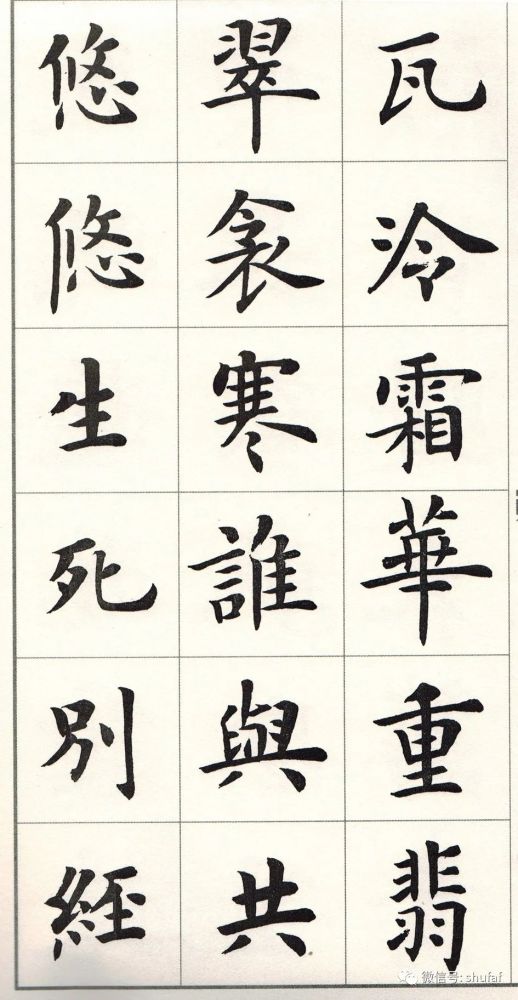 瓦冷霜華重翡
翠衾寒誰與共
悠悠生死別經
微信号: shufaf